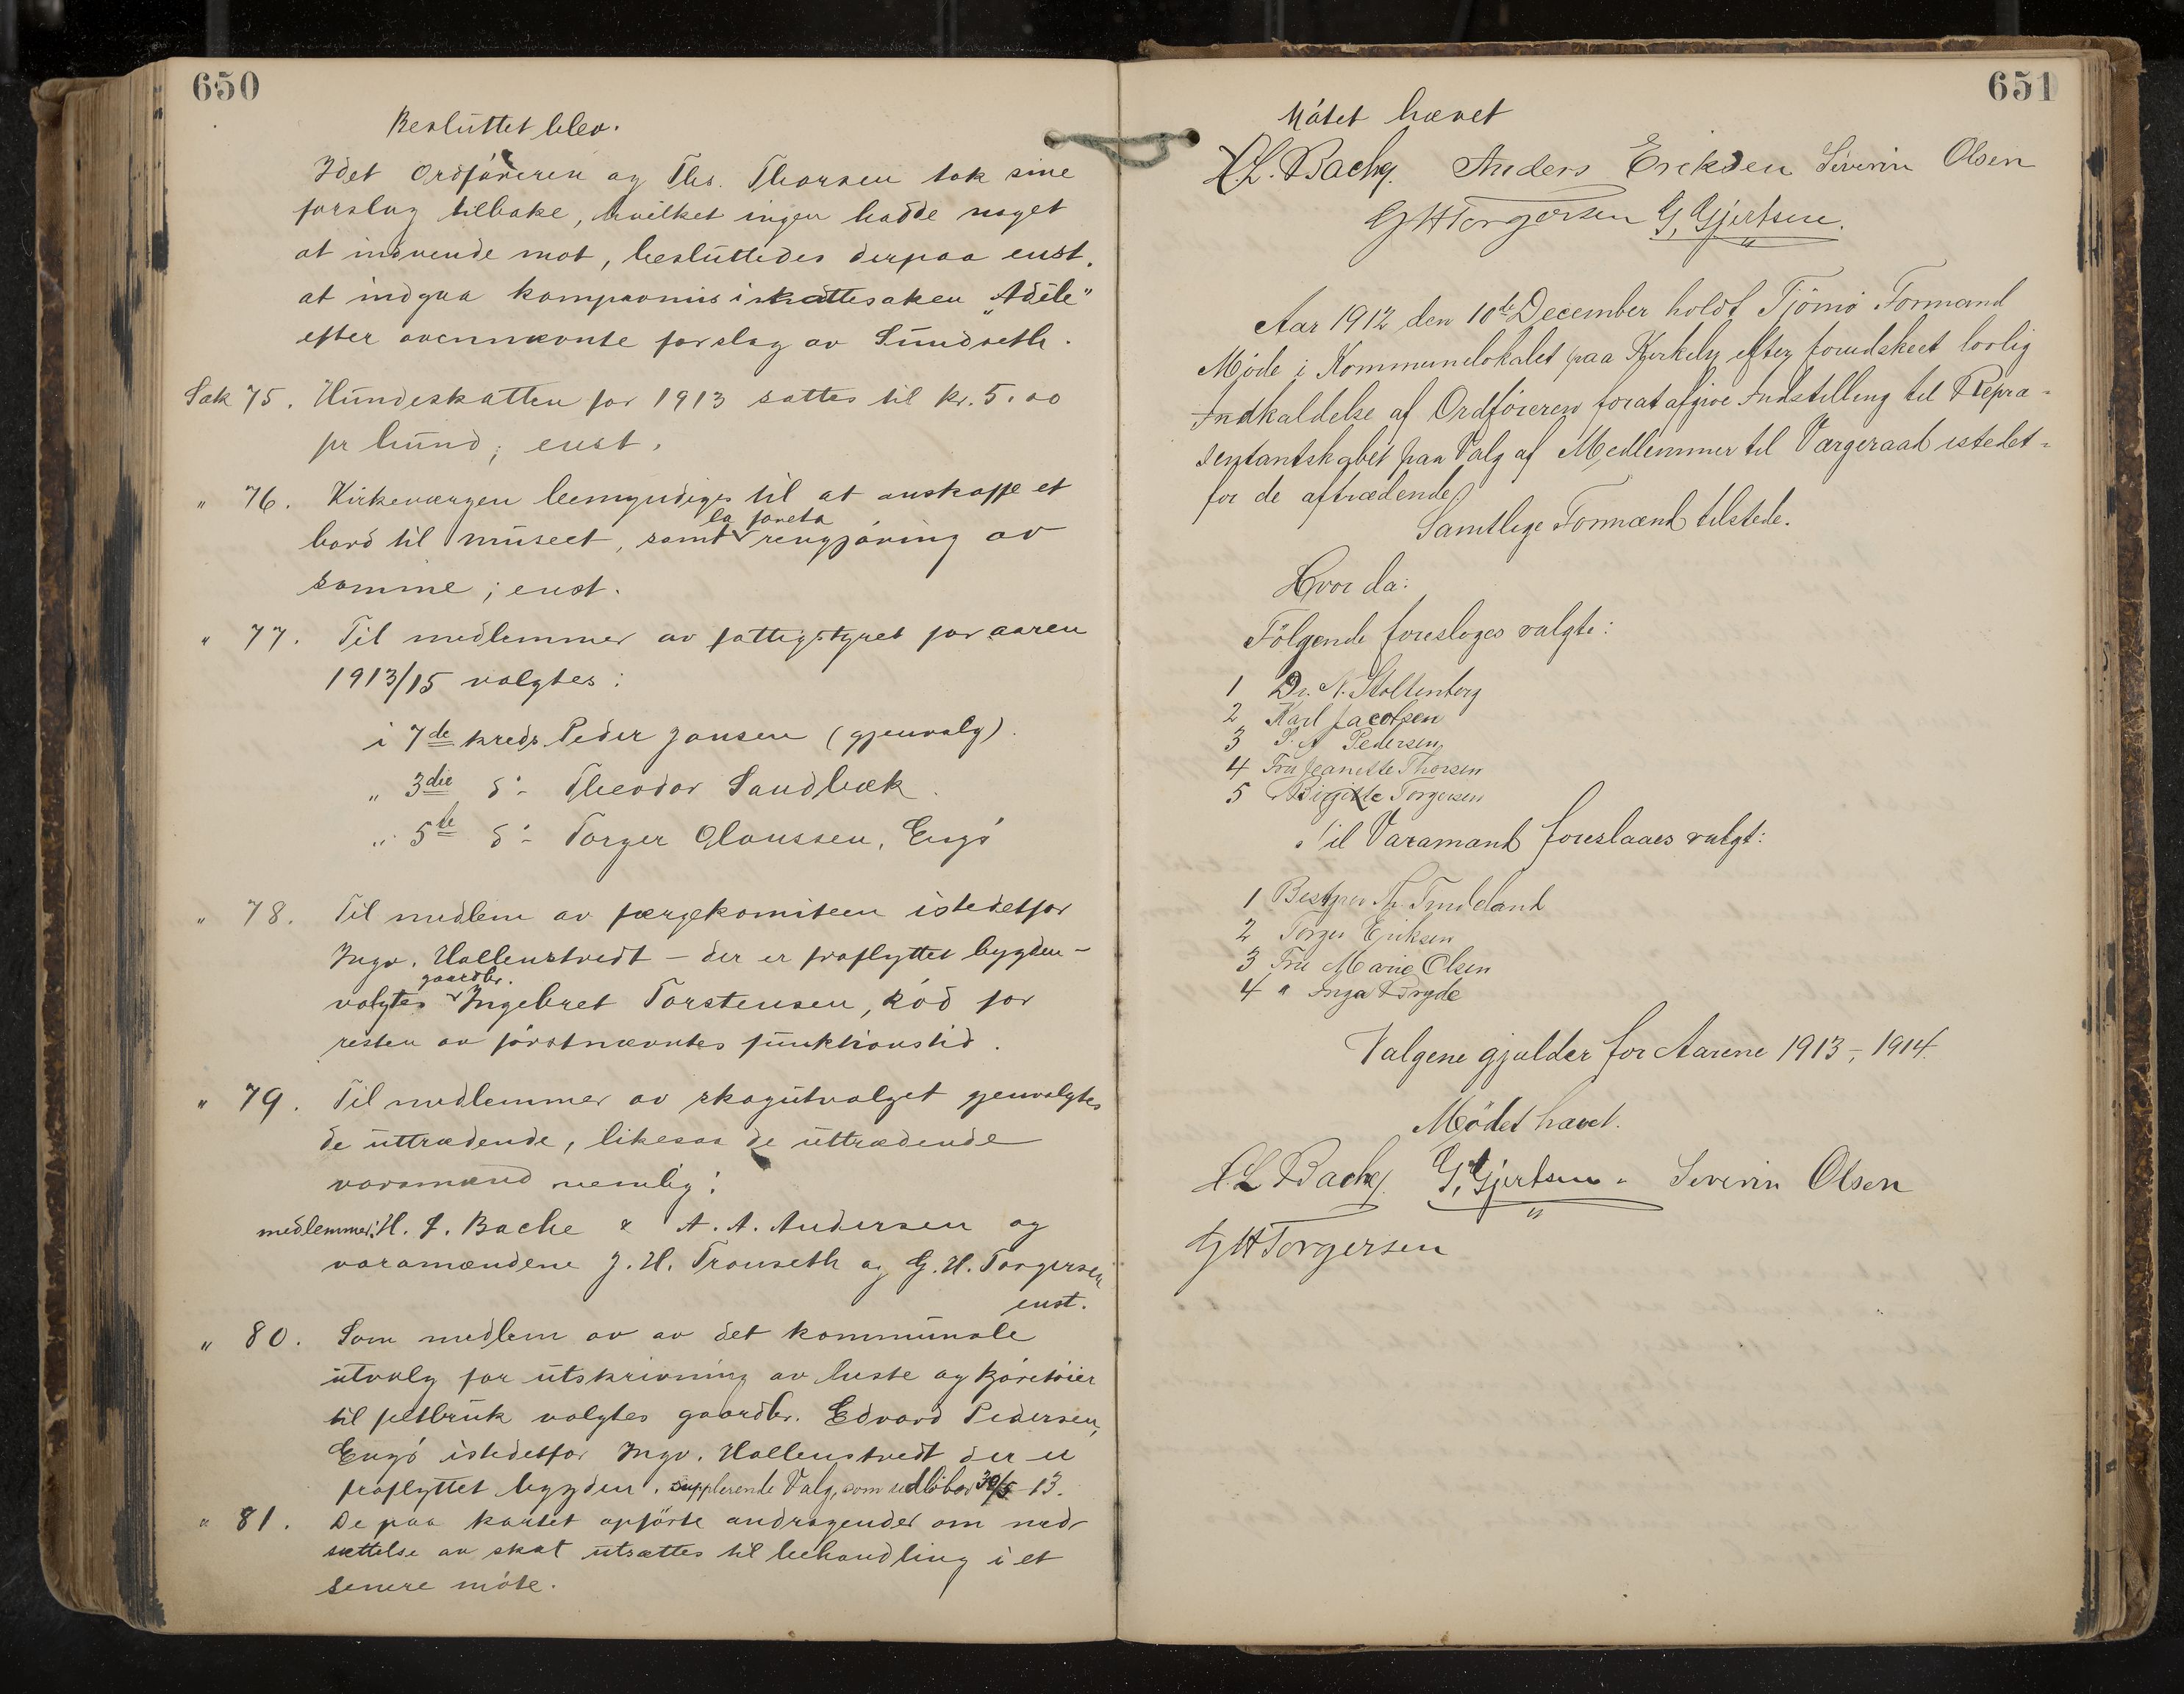 650
Besluttet blev.
Idet Ordføreren og Ths. Thorsen tok sine
forslag tilbake, hvilket ingen hadde noget
at indvende mot, besluttedes derpaa enst.
at indgaa kompromis i skattesaken „Adéle”
efter ovennævnte forslag av Sundseth.
Sak 75. Hundeskatten for 1913 sattes til kr. 5.00
pr hund; enst.
" 76. Kirkeværgen bemyndiges til at anskaffe et
la foreta
bord til museet, samt rengjøring av
samme; enst.
" 77. Til medlemmer av fattigstyret for aaren
1913/15 valgtes:
i 7de kreds Peder Jansen (gjenvalg).
" 3die d:- Theodor Sandbæk.
" 5te d:- Torger Claussen, Engø
" 78. Til medlem av færgekomiteen istedetfor
Ingv. Hallenstvedt – der er fraflyttet bygden –
gaardbr.
valgtes Ingebret Torstensen, Rød for
resten av førstnævntes funktionstid.
" 79. Til medlemmer av skogutvalget gjenvalgtes
de uttrædende, likesaa de uttrædende
varamænd nemlig:
medlemmer: H. L. Bache & A. A. Andersen og
varamændene J. H. Trouseth og G. H. Torgersen
enst.
" 80. Som medlem av av det kommunale
utvalg for utskrivning av heste og kjøretøier
til feltbruk valgtes gaardbr. Edvard Pedersen,
Engø istedetfor Ingv. Hallenstvedt der er
fraflyttet bygden. supplerende Valg, som udløber 30/5-13.
" 81. De paa kartet opførte andragender om ned-
sættelse av skat utsættes til behandling i et
senere møte.
651
Møtet hævet
H.L. Bache. Anders Ericksen Severin Olsen
G H Torgersen G. Gjertsen.
Aar 1912 den 10de December holdt Tjømø Formand
Møde i Kommunelokalet paa Kirkely efter forudskeet lovlig
Indkaldelse af Ordføreren forat afgive Indstilling til Repræ-
sentantskabet paa Valg af Medlemmer til Værgeraad istedet-
for de aftrædende.
Samtlige Formænd tilstede.
Hvor da:
Følgende foresloges valgte:
1 Dr. N. Stoltenberg
2 Karl Jacobsen
3 S. A Pedersen
4 Fru Jeanette Thorsen
5 " Birgitte Torgersen
Til Varamænd foreslaaes valgt:
1 Bestyrer Th. Trudeland
2 Torger Eriksen
3 Fru Marie Olsen
4 " Inga Bryde
Valgene gjælder for Aarene 1913-, 1914.
Mødet hævet.
H.L Bache. G. Gjertsen. Severin Olsen
G H Torgersen